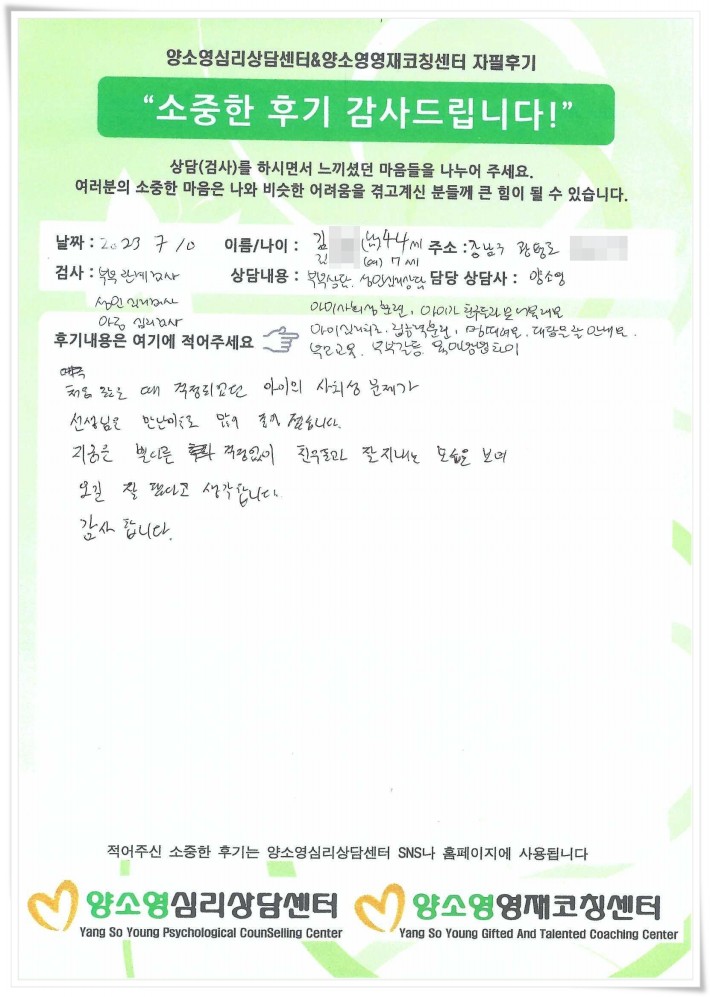 양소영심리상담센터&양소영영재코칭센터 자필후기
“소중한 후기 감사드립니다!”
상담(검사)를 하시면서 느끼셨던 마음들을 나누어 주세요.
여러분의 소중한 마음은 나와 비슷한 어려움을 겪고계신 분들께 큰 힘이 될 수 있습니다.
날짜 : 2023 7 10 이름/나이 : 김 (남)44세 주소 :
김 (여) 7세
검사 : 부부관계검사 상담내용 : 부부상담. 성인심리상담 담당 상담사 : 양소영
성인 심리검사
아동 심리검사
아이사회성훈련, 아이가 친구들과 못어울려요
후기내용은 여기에 적어주세요
부모교육. 부부갈등
처음 왔을 때 걱정되었던 아이의 사회성 문제가
선생님을 만난이후로 많이 좋아 졌습니다.
지금은 별다른 걱정없이 친구들과 잘지내는 모습을 보며
오길 잘 했다고 생각합니다.
감사 합니다.
적어주신 소중한 후기는 양소영심리상담센터 SNS나 홈페이지에 사용됩니다
양소영심리상담센터 양소영영재코칭센터
Yang So Young Psychological CounSelling Center Yang So Young Gifted And Talented Coaching Center